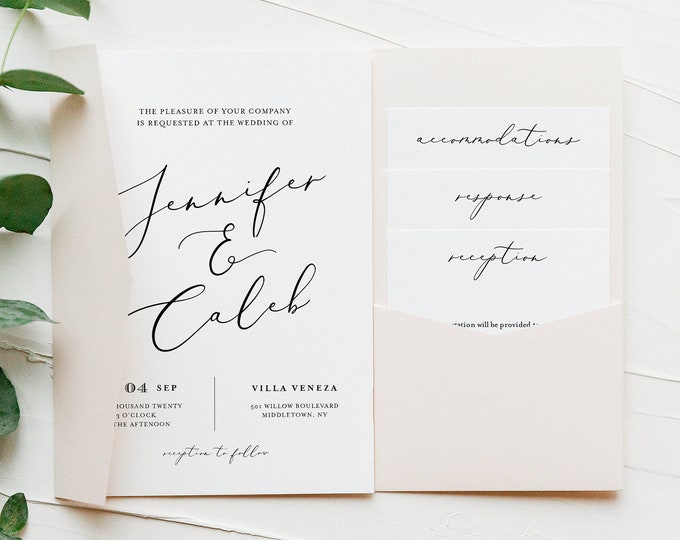 THE PLEASURE OF YOUR COMPANY
IS REQUESTED AT THE WEDDING OF
Jennifer
&
Caleb
04 SEP
HOUSAND TWENTY
3 O'CLOCK
THE AFTENOON
VILLA VENEZA
501 WILLOW BOULEVARD
MIDDLETOWN, NY
reception to follow
accommodations
response
reception
will be provided